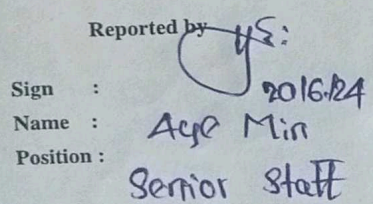 Reported by
Sign :
20/6/24
Name : Aye Min
Position :
Senior Staff